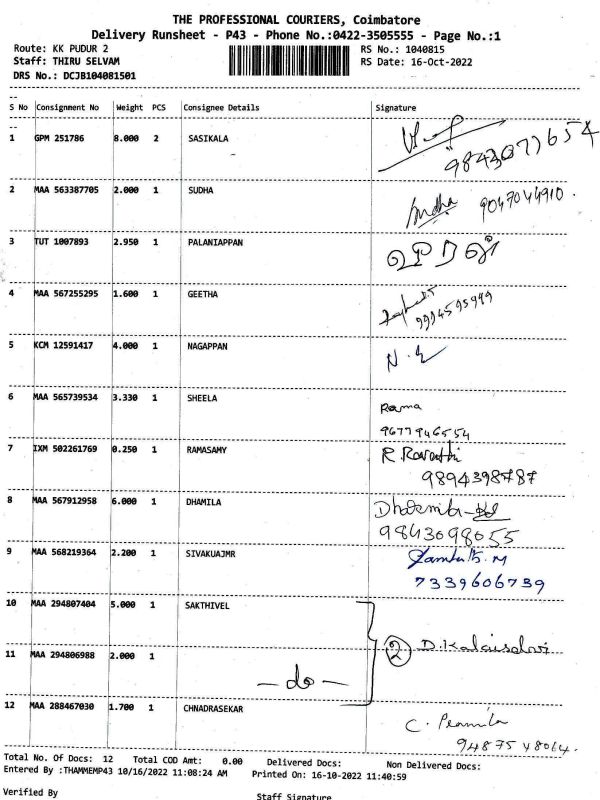 THE PROFESSIONAL COURIERS, Coimbatore
Delivery Runsheet - P43 - Phone No.:0422-3505555 - Page No.:1
Route: KK PUDUR 2 RS No.: 1040815
Staff: THIRU SELVAM RS Date: 16-Oct-2022
DRS No.: DCJB104081501
S No Consignment No Weight PCS Consignee Details Signature
1 GPM 251786 8.000 2 SASIKALA
9843077654
2 MAA 563387705 2.000 1 SUDHA Sudha 9047044910.
3 TUT 1007893 2.950 1 PALANIAPPAN
4 MAA 567255295 1.600 1 GEETHA
9994595999
5 KCM 12591417 4.000 1 NAGAPPAN
6 MAA 565739534 3.330 1 SHEELA Rama
9677946554
7 IXM 502261769 0.250 1 RAMASAMY R. Revathi
9894398787
8 MAA 567912958 6.000 1 DHAMILA
9843098055
9 MAA 568219364 2.200 1 SIVAKUAJMR
7339606739
10 MAA 294807404 5.000 1 SAKTHIVEL
2 D. Kalaiselvi
11 MAA 294806988 2.000 1
- do -
12 MAA 288467030 1.700 1 CHNADRASEKAR
C. Pramila
9487548064.
Total No. Of Docs: 12 Total COD Amt: 0.00 Delivered Docs: Non Delivered Docs:
Entered By :THAMMEMP43 10/16/2022 11:08:24 AM Printed On: 16-10-2022 11:40:59
Verified By Staff Signature